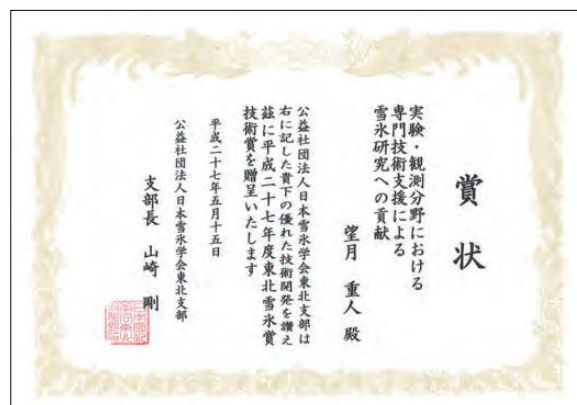 賞状
実験・観測分野における
専門技術支援による
雪氷研究への貢献
望月 重人 殿
公益社団法人日本雪氷学会東北支部は
右に記した貴下の優れた技術開発を讃え
茲に平成二十七年度東北雪氷賞
技術賞を贈呈いたします
平成二十七年五月十五日
公益社団法人日本雪氷学会東北支部
支部長 山崎 剛